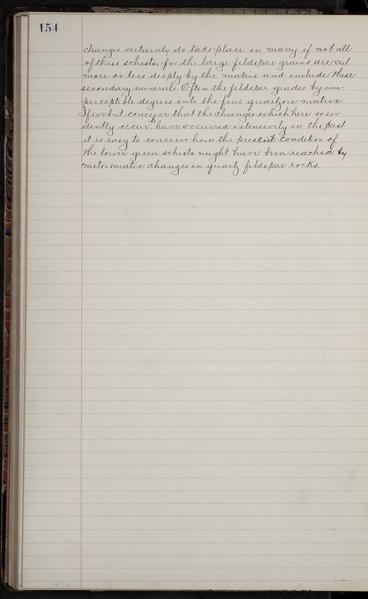 154
changes certainly do take place in many if not all
of these schists, for the large feldspar grains are cut
more or less deeply by the matrix and include these
secondary minerals. Often the feldspar grades by im-
perceptible degrees into the fine quartzose matrix.
If we but conceive that the changes which here so evi-
dently occur, have occurred extensively in the past
it is easy to conceive how the present condition of
the lower green schists might have been reached by
metasomatic changes in quartz feldspar rocks.